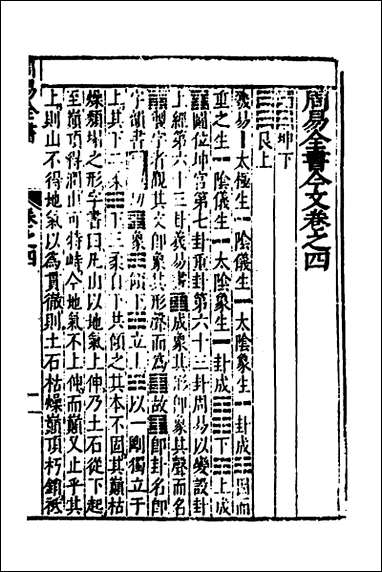 周易全書今文卷之四
䷖坤下
艮上
羲易⚊太極生⚋陰儀生⚏太陰象生☷一卦成䷁因而
重之生⚋陰儀生⚏太陰象生☶一卦成䷖下䷖上成
䷖圖位坤宮第七卦重卦第六十三卦周易以變設卦
上經第六十三卦義易書䷖成象其形卽象其聲而名
䷖制字者觀其文卽象其形聲而為䷖故䷖卽卦名卽
字韻書 切䷖象䷖傾下䷖立上䷖以一剛獨立于
上其下二柔䷖下三柔白下其傾之其本不固其巔枯
燥類塌之形字書曰凡山以地氣上伸乃土石從下起
至巔頂得潤山可特峙今地氣不上伸而巔又止乎其
上則山不得地氣以為貫徹則土石枯燥巔頂朽銷祇
周易全書
卷之四
一